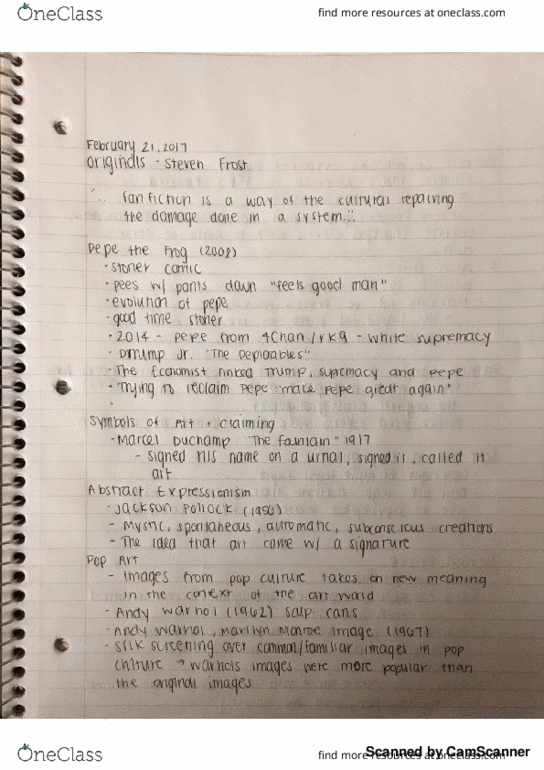 OneClass
find more resources at oneclass.com
February 21, 2017
originals - Steven Frost
".. fanfiction is a way of the cultural repairing
the damage done in a system..."
Pepe the Frog (2008)
· stoner comic
· pees w/ pants down "feels good man"
· evolution of pepe
· good time stoner
· 2014 - pepe from 4chan/rk9 - white supremacy
· Drump Jr. "The Deplorables"
· The Economist linked Trump, supremacy and pepe
· Trying to reclaim Pepe "make pepe great again"
·
Symbols of Art + claiming
· Marcel Duchamp "The fountain" 1917
- signed his name on a urnal, signed it, called it
art
Abstract Expressionism
· Jackson Pollock (1950)
- Mystic, spontaneous, automatic, subconscious creations
- The idea that art came w/ a signature
Pop Art
- Images from pop culture takes on new meaning
in the context of the art world
- Andy Warhol (1962) soup cans
- Andy Warhol, Marilyn Monroe image (1967)
- silk screening over common/familiar images in pop
culture → warhols images were more popular than
the original images
OneClass
find more resources at oneclass.com
Scanned by CamScanner